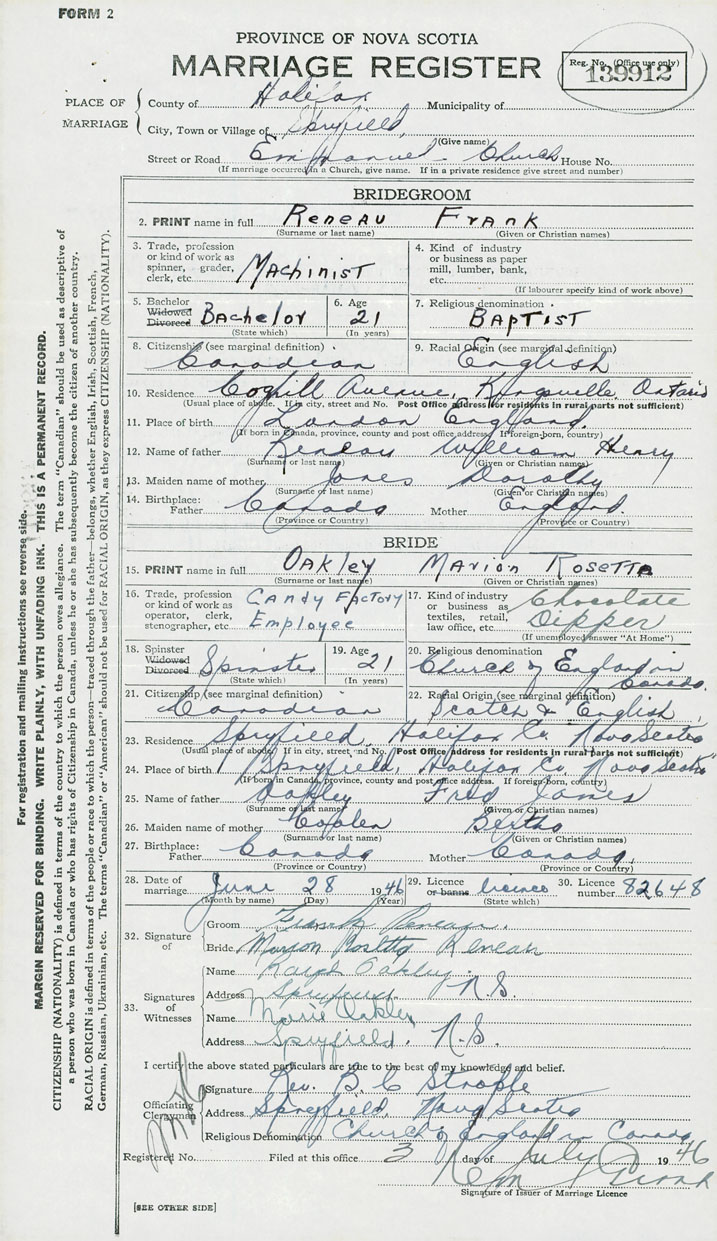 FORM 2
PROVINCE OF NOVA SCOTIA
MARRIAGE REGISTER
Reg. No. (Office use only)
139912
PLACE OF MARRIAGE
County of Halifax Municipality of
City, Town or Village of Spryfield,
(Give name)
Street or Road Emmanuel Church House No.
(If marriage occurred in a Church, give name. If in a private residence give street and number)
BRIDEGROOM
2. PRINT name in full Reneau Frank
(Surname or last name) (Given or Christian names)
3. Trade, profession or kind of work as spinner, grader, clerk, etc. Machinist
4. Kind of industry or business as paper mill, lumber, bank, etc.
(If labourer specify kind of work above)
5. Bachelor Widowed Divorced Bachelor
(State which)
6. Age 21
(In years)
7. Religious denomination
Baptist
8. Citizenship (see marginal definition)
Canadian
9. Racial Origin (see marginal definition)
English
10. Residence Coghill Avenue, Kingsville, Ontario
(Usual place of abode. If in city, street and No. Post Office address for residents in rural parts not sufficient)
11. Place of birth London England.
(If born in Canada, province, county and post office address. If foreign-born, country)
12. Name of father Reneau William Henry
(Surname or last name) (Given or Christian names)
13. Maiden name of mother Jones Dorothy
(Surname or last name) (Given or Christian names)
14. Birthplace: Father Canada Mother England.
(Province or Country) (Province or Country)
BRIDE
15. PRINT name in full Oakley Marion Rosetta
(Surname or last name) (Given or Christian names)
16. Trade, profession or kind of work as operator, clerk, stenographer, etc. Candy Factory Employee
17. Kind of industry or business as textiles, retail, law office, etc. Chocolate Dipper
(If unemployed answer "At Home")
18. Spinster Widowed Divorced Spinster
(State which)
19. Age 21
(In years)
20. Religious denomination
Church of England in Canada.
21. Citizenship (see marginal definition)
Canadian
22. Racial Origin (see marginal definition)
Scotch & English
23. Residence Spryfield, Halifax Co. Nova Scotia
(Usual place of abode. If in city, street and No. Post Office address for residents in rural parts not sufficient)
24. Place of birth Spryfield, Halifax Co. Nova Scotia
(If born in Canada, province, county and post office address. If foreign-born, country)
25. Name of father Oakley Fred James
(Surname or last name) (Given or Christian names)
26. Maiden name of mother Bertha
(Surname or last name) (Given or Christian names)
27. Birthplace: Father Canada Mother Canada,
(Province or Country) (Province or Country)
28. Date of marriage June 28 1946
(Month by name) (Day) (Year)
29. Licence or banns licence
(State which)
30. Licence number 82648
32. Signature of
Groom Frank Reneau.
Bride Marion Rosetta Reneau
33. Signatures of Witnesses
Name Ralph Oakley.
Address Spryfield. N.S.
Name Marie Oakley
Address Spryfield. N.S.
I certify the above stated particulars are true to the best of my knowledge and belief.
Officiating Clergyman
Signature Rev. B C
Address Spryfield, Nova Scotia
Religious Denomination Church of England in Canada
Registered No. Filed at this office 3 day of July 1946
Signature of Issuer of Marriage Licence
[SEE OTHER SIDE]
For registration and mailing instructions see reverse side.
MARGIN RESERVED FOR BINDING. WRITE PLAINLY, WITH UNFADING INK. THIS IS A PERMANENT RECORD.
CITIZENSHIP (NATIONALITY) is defined in terms of the country to which the person owes allegiance. The term "Canadian" should be used as descriptive of
a person who was born in Canada or who has rights of Citizenship in Canada, unless he or she has subsequently become the citizen of another country.
RACIAL ORIGIN is defined in terms of the people or race to which the person—traced through the father—belongs, whether English, Irish, Scottish, French,
German, Russian, Ukrainian, etc. The terms "Canadian" or "American" should not be used for RACIAL ORIGIN, as they express CITIZENSHIP (NATIONALITY).